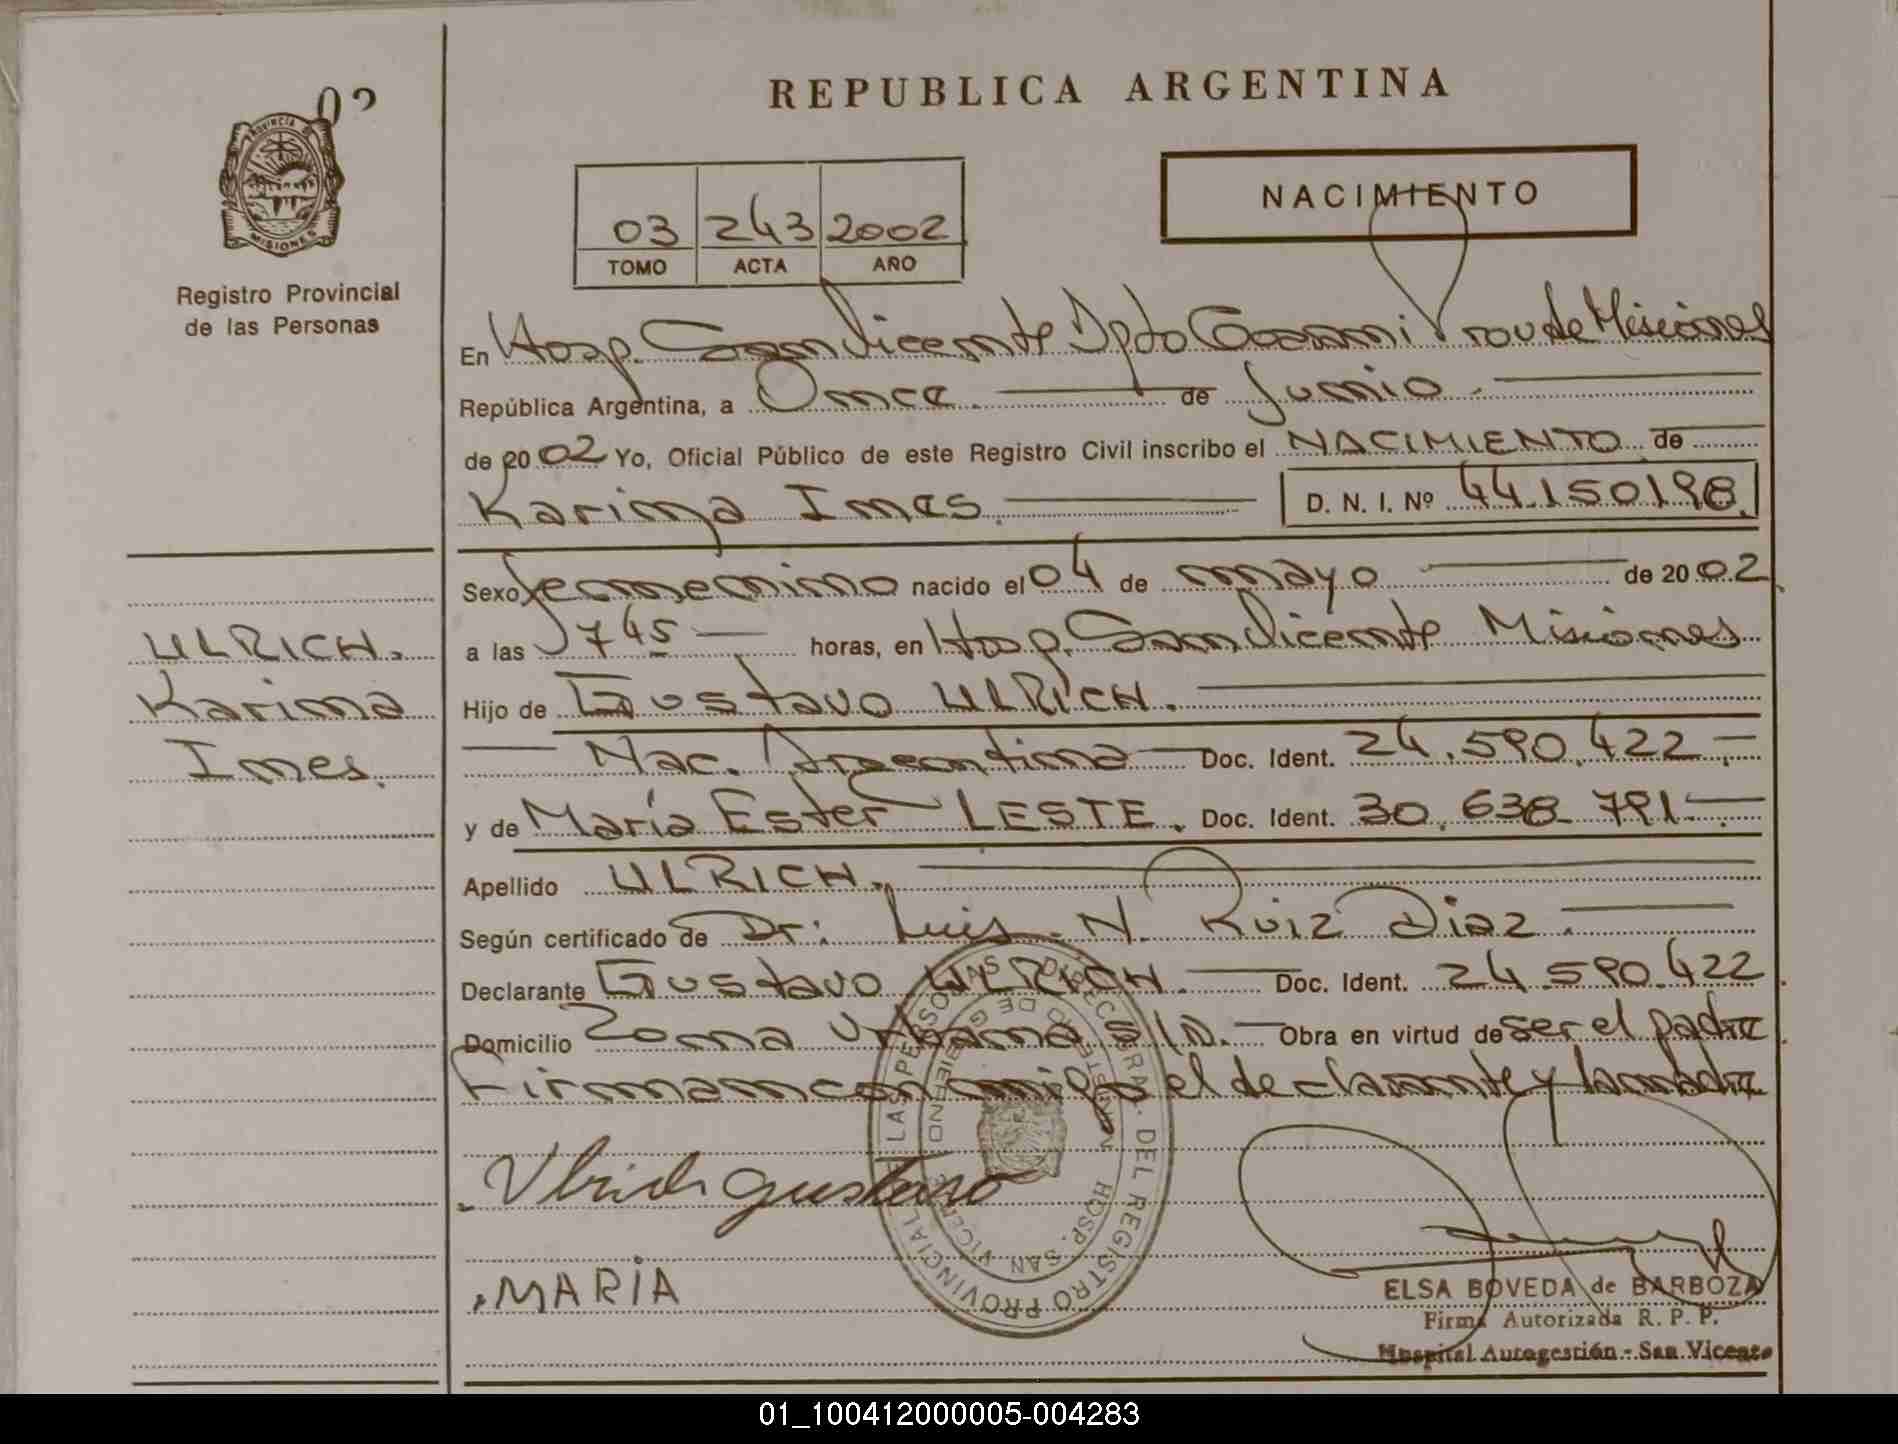 02
REPUBLICA ARGENTINA
PROVINCIA DE
MISIONES
Registro Provincial
de las Personas
03 243 2002
TOMO ACTA AÑO
NACIMIENTO
En Hosp. San Vicente Dpto Guarani Prov de Misiones
República Argentina, a Once de Junio
de 2002 Yo, Oficial Público de este Registro Civil inscribo el NACIMIENTO de
Karina Ines D. N. I. Nº 44.150.198
Sexo femenino nacido el 04 de mayo de 2002
a las 745 horas, en Hosp. San Vicente Misiones
Hijo de Gustavo ULRICH.
Nac. Argentina Doc. Ident. 24.590.422
y de María Ester LESTE. Doc. Ident. 30.638.791
Apellido ULRICH.
Según certificado de Dr: Luis N. Ruiz Diaz
Declarante Gustavo ULRICH. Doc. Ident. 24.590.422
Domicilio Zona Urbana S/D. Obra en virtud de ser el padre
Firman con migo el declarante y la madre
ULRICH.
Karina
Ines.
Ulrich Gustavo
MARIA
DEL REGISTRO PROVINCIAL DE LAS PERSONAS
HOSP. SAN VICENTE
ELSA BOVEDA de BARBOZA
Firma Autorizada R. P. P.
Hospital Autogestión - San Vicente
01_100412000005-004283